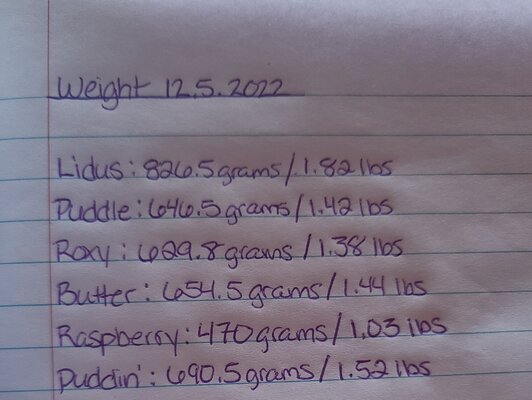 Weight 12.5.2022
Lidus: 826.5 grams/1.82 lbs
Puddle: 646.5 grams/1.42 lbs
Roxy: 629.8 grams/1.38 lbs
Butter: 654.5 grams/1.44 lbs
Raspberry: 470 grams/1.03 lbs
Puddin': 690.5 grams/1.52 lbs